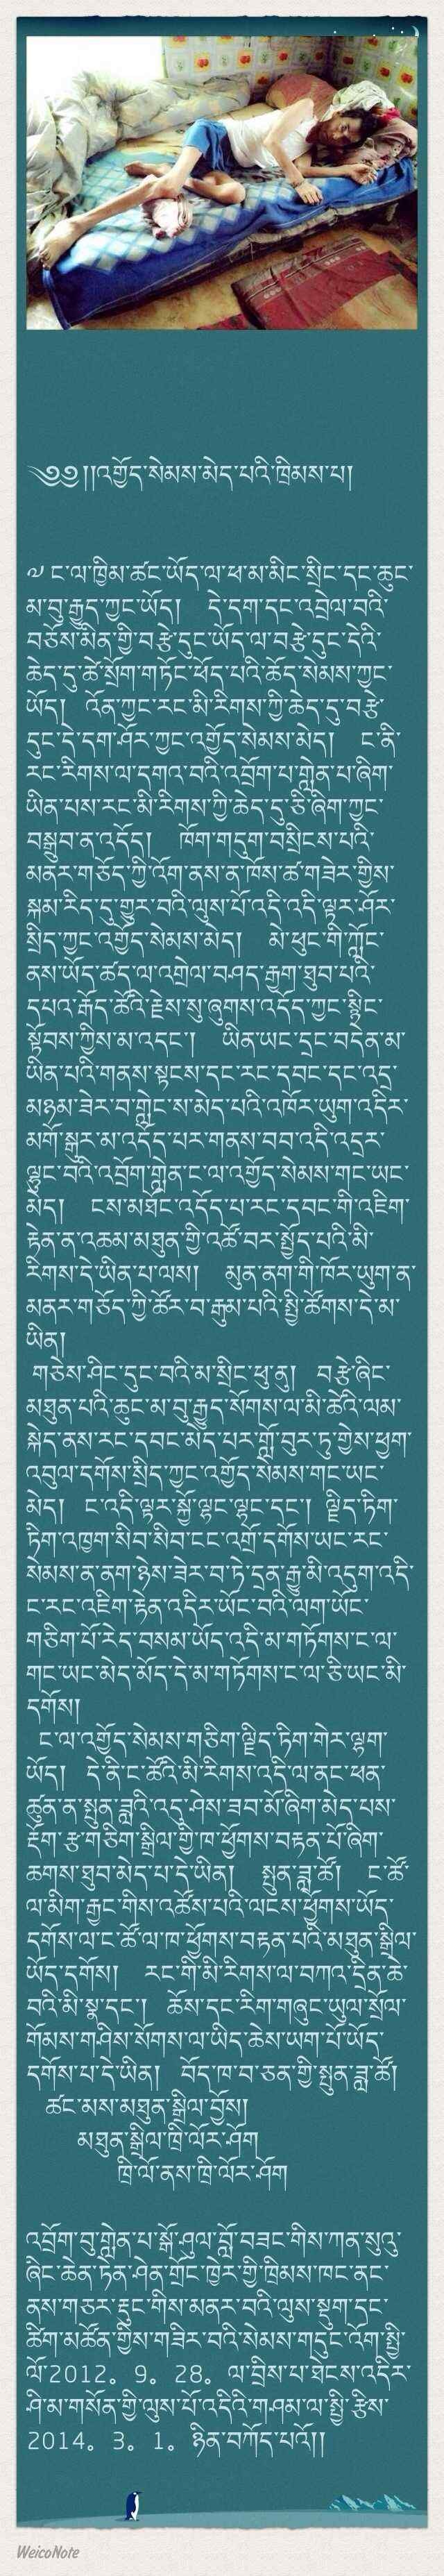 ༄༅།།འགྱོད་སེམས་མེད་པའི་ཁྲིམས་པ།
༧ ང་ལ་ཁྱིམ་ཚང་ཡོད་ལ་ཕ་མ་མིང་སྲིང་དང་ཆུང་
མ་བུ་རྒྱུད་ཀྱང་ཡོད།  དེ་དག་དང་འབྲེལ་བའི་
བཅོས་མིན་གྱི་བརྩེ་དུང་ཡོད་ལ་བརྩེ་དུང་དེའི་
ཆེད་དུ་ཚེ་སྲོག་གཏོང་ཕོད་པའི་ཆོད་སེམས་ཀྱང་
ཡོད།  འོན་ཀྱང་རང་མི་རིགས་ཀྱི་ཆེད་དུ་བརྩེ་
དུང་དེ་དག་ཤོར་ཀྱང་འགྱོད་སེམས་མེད།  ང་ནི་
རང་རིགས་ལ་དགའ་བའི་འབྲོག་པ་གླེན་པ་ཞིག་
ཡིན་པས་རང་མི་རིགས་ཀྱི་ཆེད་དུ་ཅི་ཞིག་ཀྱང་
བསྒྲུབ་ན་འདོད།  ཁོག་གདུག་བསྲིངས་པའི་
མནར་གཅོད་ཀྱི་འོག་ནས་ན་ཁོས་ཚ་གཟེར་གྱིས་
སྐམ་རིད་དུ་གྱུར་བའི་ལུས་པོ་འདི་འདི་ལྟར་ཤོར་
སྲིད་ཀྱང་འགྱོད་སེམས་མེད།  མེ་ཕུང་གི་ཀློང་
ནས་ཡོད་ཚད་ལ་འགྲེལ་བཤད་རྒྱག་ཐུབ་པའི་
དཔའ་རྒོད་ཚོའི་རྗེས་སུ་ཞུགས་འདོད་ཀྱང་སྙིང་
སྟོབས་ཀྱིས་མ་འདང་།  ཡིན་ཡང་དྲང་བདེན་མ་
ཡིན་པའི་གནས་སྟངས་དང་རང་དབང་དང་འདྲ་
མཉམ་ཟེར་བ་གླེང་ས་མེད་པའི་འཁོར་ཡུག་འདིར་
མགོ་སྒུར་མ་འདོད་པར་གནས་བབ་འདི་འདྲར་
ལྷུང་བའི་འབྲོག་གླེན་ང་ལ་འགྱོད་སེམས་གང་ཡང་
མེད།  ངས་མཐོང་འདོད་པ་རང་དབང་གི་འཇིག་
རྟེན་ན་འཆམ་མཐུན་གྱི་འཚོ་བར་སྤྱོད་པའི་མི་
རིགས་དེ་ཡིན་པ་ལས།  མུན་ནག་གི་ཁོར་ཡུག་ན་
མནར་གཅོད་ཀྱི་ཚོར་བ་རྒུམ་པའི་སྤྱི་ཚོགས་དེ་མ་
ཡིན།
གཅེས་ཤིང་དུང་བའི་མ་སྲིང་ཕུ་ནུ།  བརྩེ་ཞིང་
མཐུན་པའི་ཆུང་མ་བུ་རྒྱུད་སོགས་ལ་མི་ཚེའི་ལམ་
སྐེད་ནས་རང་དབང་མེད་པར་གློ་བུར་ཏུ་གྱེས་ཕྱག་
འབུལ་དགོས་སྲིད་ཀྱང་འགྱོད་སེམས་གང་ཡང་
མེད།  ང་འདི་ལྟར་སྐྱོ་ལྷང་ལྷང་དང་།  ལྗིད་ཏིག་
ཏིག་འཁྱག་སིབ་སིབ་ངང་འགྲོ་དགོས་ཡང་རང་
སེམས་ན་ནག་ཉེས་ཟེར་བ་ཏེ་དྲན་རྒྱུ་མི་འདུག་འདི་
ང་རང་འཇིག་རྟེན་འདིར་ཡོང་བའི་ལག་ཡོང་
གཅིག་པོ་རེད་བསམ་ཡོད་འདི་མ་གཏོགས་ང་ལ་
གང་ཡང་མེད་མོད་དེ་མ་གཏོགས་ང་ལ་ཅི་ཡང་མི་
དགོས།
ང་ལ་འགྱོད་སེམས་གཅིག་ལྗིད་ཏིག་གེར་ལྷག་
ཡོད།  དེ་ནི་ང་ཚོའི་མི་རིགས་འདི་ལ་ནང་ཕན་
ཚུན་ན་སྤུན་ཟླའི་འདུ་ཤེས་ཟབ་མོ་ཞིག་མེད་པས་
རྡོག་རྩ་གཅིག་སྒྲིལ་གྱི་ཁ་ཕྱོགས་བརྟན་པོ་ཞིག་
ཆགས་ཐུབ་མེད་པ་དེ་ཡིན།  སྤུན་ཟླ་ཚོ།  ང་ཚོ་
ལ་མིག་རྒྱང་གིས་འཚོས་པའི་ལངས་ཕྱོགས་ཡོད་
དགོས་ལ་ང་ཚོ་ལ་ཁ་ཕྱོགས་བརྟན་པའི་མཐུན་སྒྲིལ་
ཡོད་དགོས།  རང་གི་མི་རིགས་ལ་བཀའ་དྲིན་ཆེ་
བའི་མི་སྣ་དང་།  ཆོས་དང་རིག་གཞུང་ཡུལ་སྲོལ་
གོམས་གཤིས་སོགས་ལ་ཡིད་ཆེས་ཡག་པོ་ཡོད་
དགོས་པ་དེ་ཡིན།  བོད་ཁ་བ་ཅན་གྱི་སྤུན་ཟླ་ཚོ།
ཚང་མས་མཐུན་སྒྲིལ་བྱོས།
མཐུན་སྒྲིལ་ཁྲི་ལོར་ཤོག
ཁྲི་ལོ་ནས་ཁྲི་ལོར་ཤོག
འབྲོག་བུ་གླེན་པ་སྐོ་ཤུལ་བློ་བཟང་གིས་ཀན་སུའུ་
ཞིང་ཆེན་ཏེན་ཤེན་གྲོང་ཁྱེར་གྱི་ཁྲིམས་ཁང་ནང་
ནས་གཅར་རྡུང་གིས་མནར་བའི་ལུས་སྡུག་དང་
ཚིག་མཚོན་གྱིས་གཟིར་བའི་སེམས་གདུང་འོག་སྤྱི་
ལོ་2012。9。28。ལ་བྲིས་པ་ཐེངས་འདིར་
ཤི་མ་གསོན་གྱི་ལུས་པོ་འདིའི་གཤམ་ལ་སྤྱི་རྩིས་
2014。3。1。ཉིན་བཀོད་པའོ།།
WeicoNote